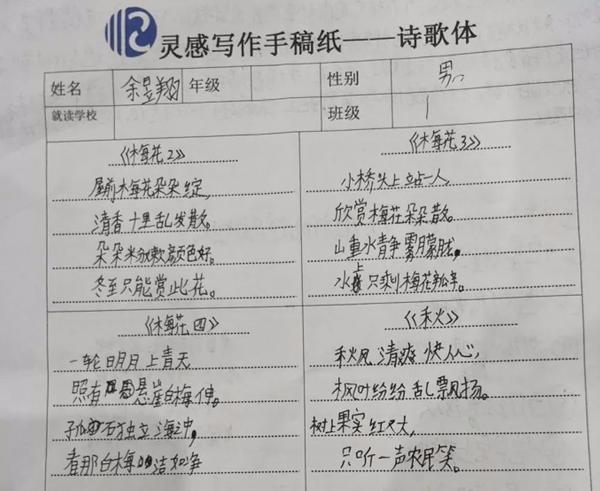 灵感写作手稿纸——诗歌体
姓名 余昱翔 年级 性别 男
就读学校 班级 1
《梅花2》
屋前梅花朵朵绽,
清香十里乱发散。
朵朵米颜色好。
冬至只能赏此花。
《梅花3》
小桥头上站一人,
欣赏梅花朵朵散。
山重水青争雾朦胧,
水上只剩梅花
《梅花四》
一轮明月上青天
照有悬崖白梅伸。
孤石独立海冲,
看那白梅洁如争
《秋》
秋风清爽快人心,
枫叶纷纷乱飘扬。
树上果实红又大,
只听一声农民笑。